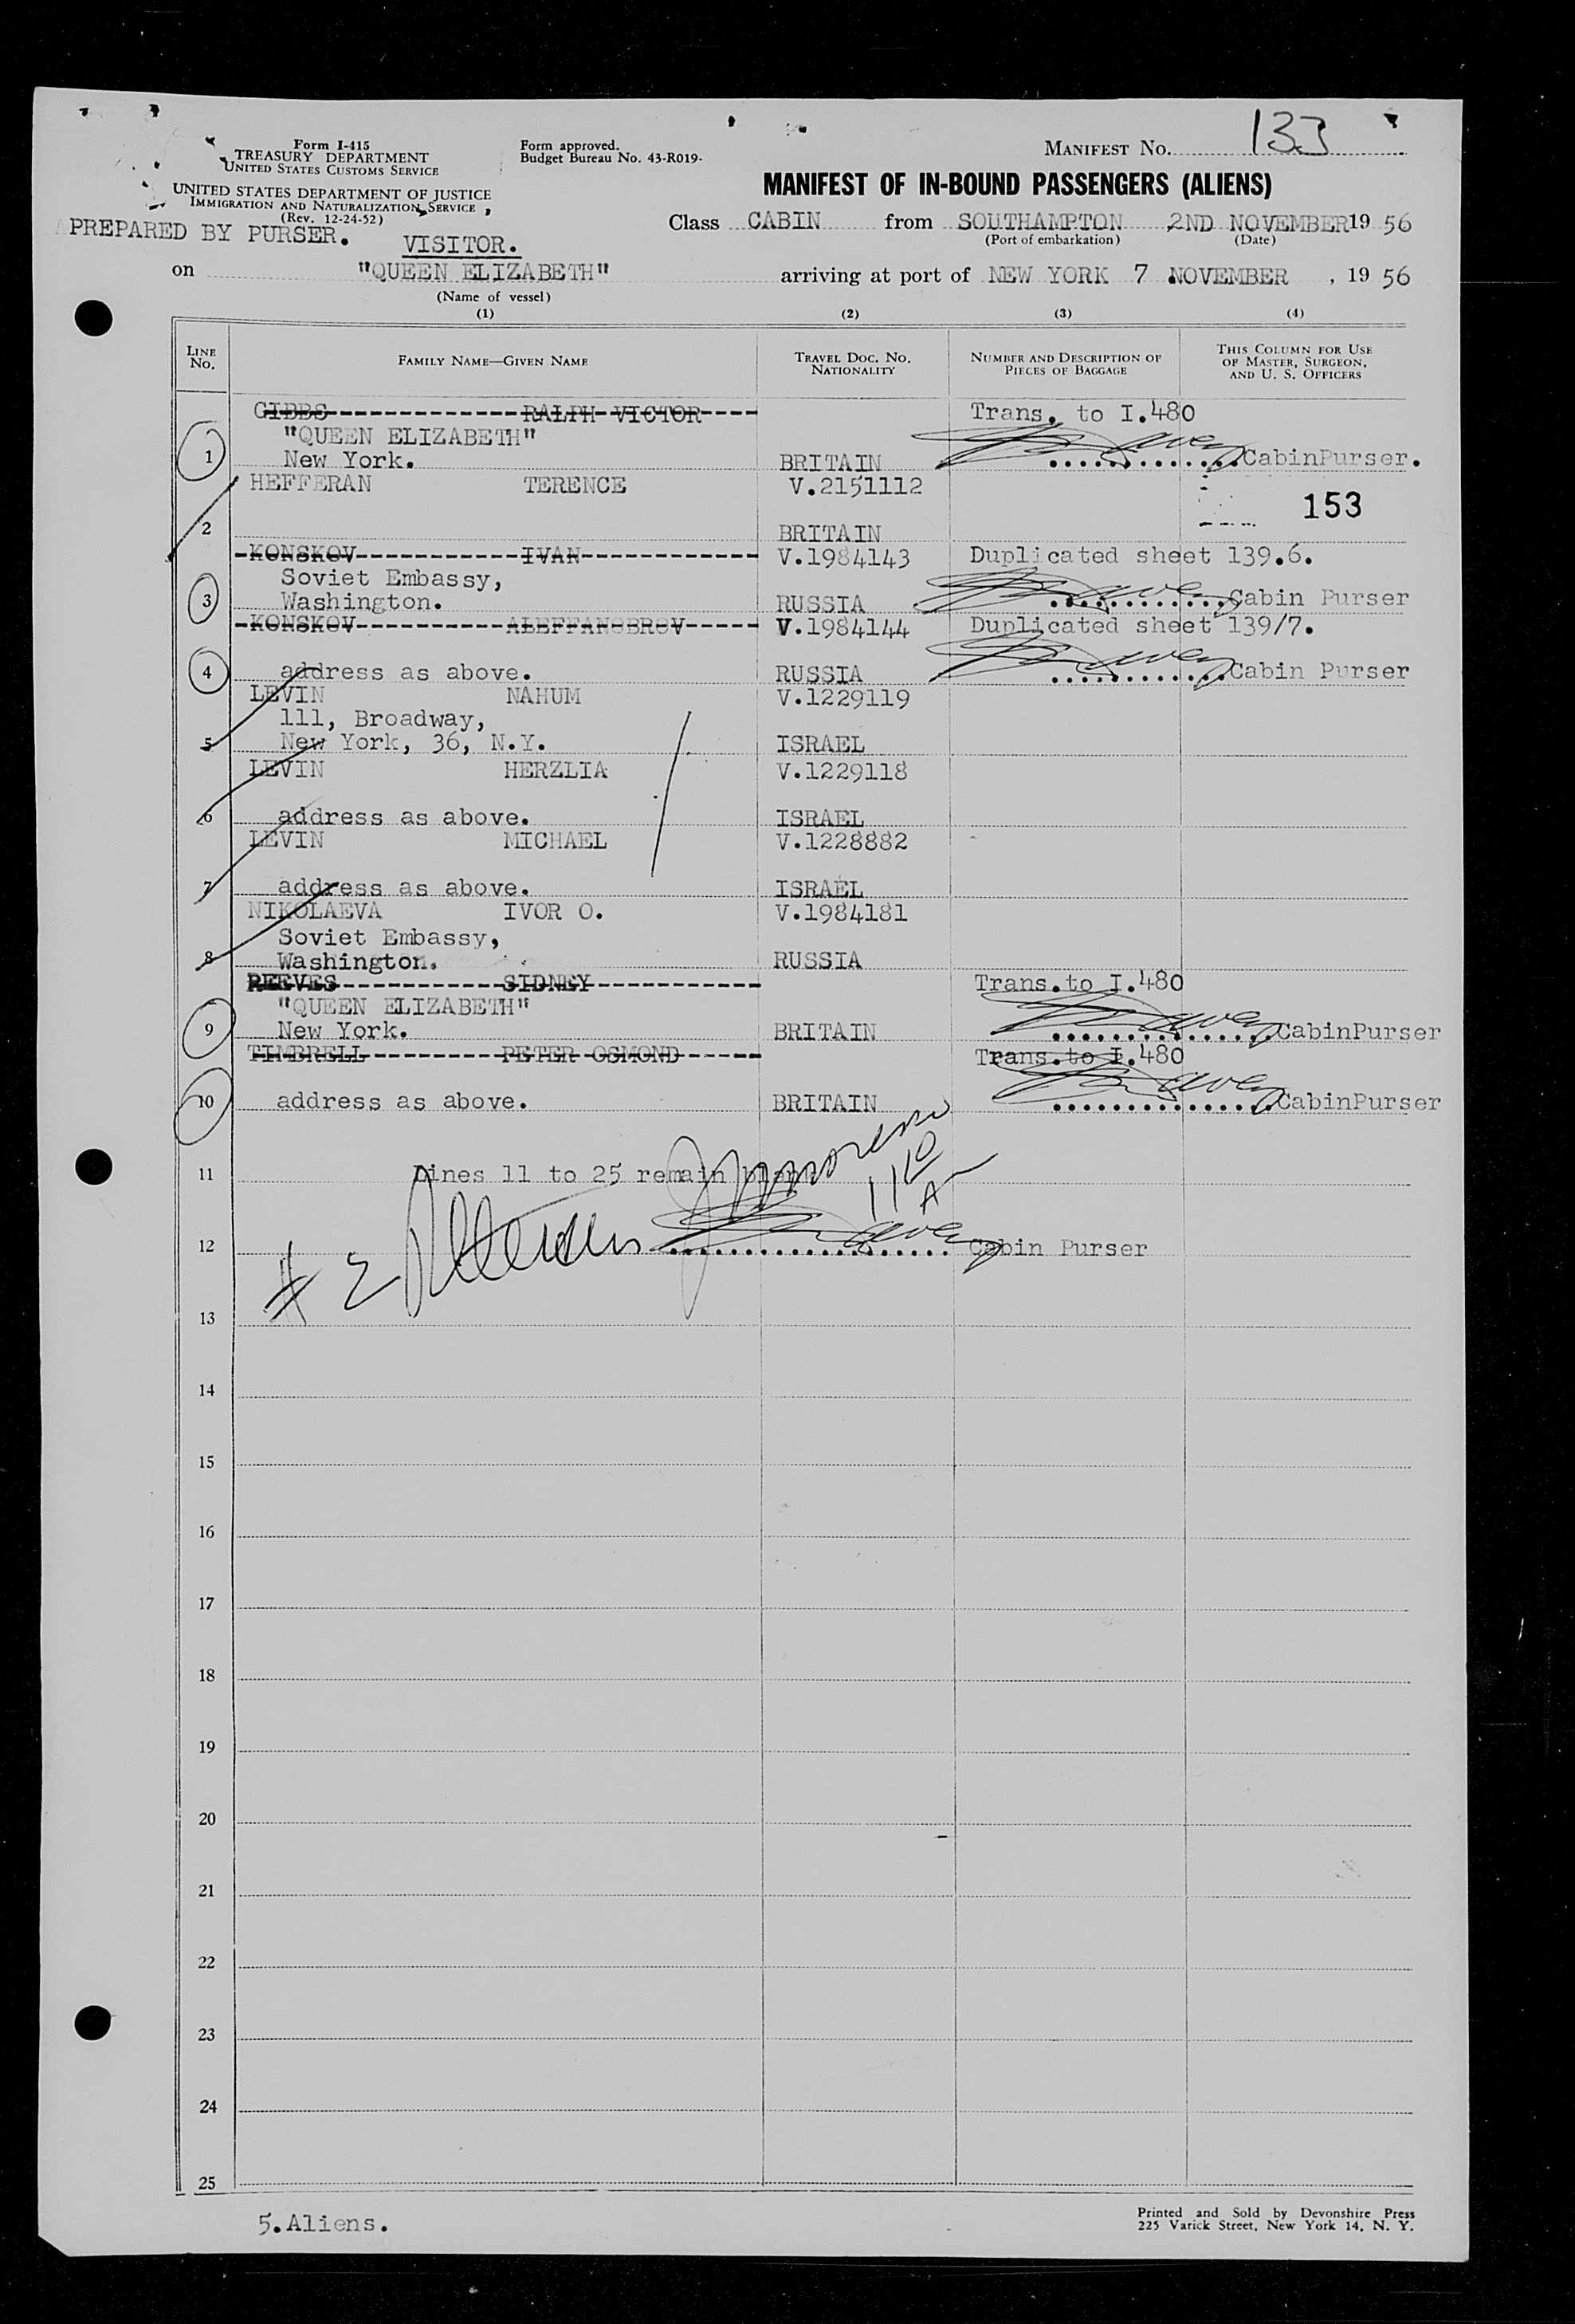 Form I-415
TREASURY DEPARTMENT
UNITED STATES CUSTOMS SERVICE
UNITED STATES DEPARTMENT OF JUSTICE
IMMIGRATION AND NATURALIZATION SERVICE
(Rev. 12-24-52)
Form approved.
Budget Bureau No. 43-R019-
MANIFEST NO. 133
MANIFEST OF IN-BOUND PASSENGERS (ALIENS)
PREPARED BY PURSER.
VISITOR.
Class CABIN from SOUTHAMPTON 2ND NOVEMBER 19 56
(Port of embarkation) (Date)
on "QUEEN ELIZABETH" arriving at port of NEW YORK 7 NOVEMBER , 19 56
(Name of vessel)
(1) (2) (3) (4)
LINE NO.
FAMILY NAME—GIVEN NAME
TRAVEL DOC. NO. NATIONALITY
NUMBER AND DESCRIPTION OF PIECES OF BAGGAGE
THIS COLUMN FOR USE OF MASTER, SURGEON, AND U. S. OFFICERS
GIBBS RALPH VICTOR Trans. to I.480
"QUEEN ELIZABETH"
1 New York. BRITAIN CabinPurser.
HEFFERAN TERENCE V.2151112
153
2 BRITAIN
KONSKOV IVAN V.1984143 Duplicated sheet 139.6.
Soviet Embassy,
3 Washington. RUSSIA Cabin Purser
KONSKOV ALEFFANOBROV V.1984144 Duplicated sheet 139/7.
4 address as above. RUSSIA Cabin Purser
LEVIN NAHUM V.1229119
111, Broadway,
5 New York, 36, N.Y. ISRAEL
LEVIN HERZLIA V.1229118
6 address as above. ISRAEL
LEVIN MICHAEL V.1228882
7 address as above. ISRAEL
NIKOLAEVA IVOR O. V.1984181
Soviet Embassy,
8 Washington. RUSSIA
REEVES SIDNEY Trans.to I.480
"QUEEN ELIZABETH"
9 New York. BRITAIN CabinPurser
TIMBRELL PETER OSMOND Trans.to I.480
10 address as above. BRITAIN CabinPurser
11 Lines 11 to 25 remain blank
12 Cabin Purser
# 2
13
14
15
16
17
18
19
20
21
22
23
24
25
5.Aliens.
Printed and Sold by Devonshire Press
225 Varick Street, New York 14, N. Y.